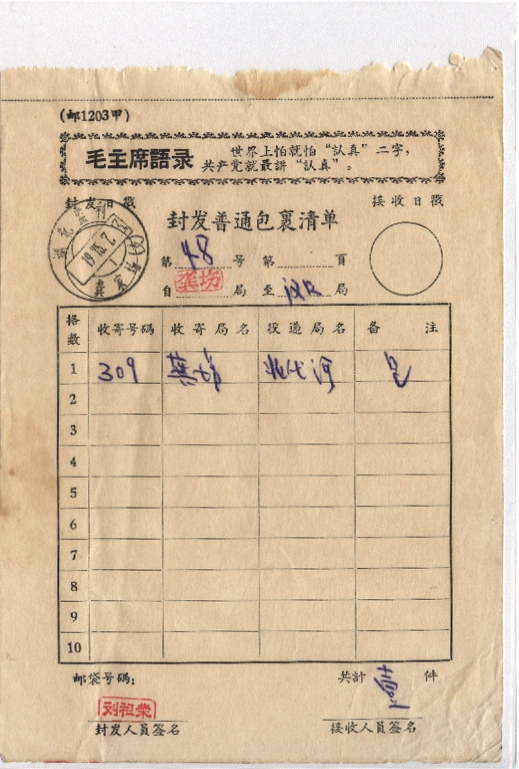 (邮1203甲)
毛主席語录
世界上怕就怕“認真”二字，
共产党就最讲“認真”。
封发日戳
接收日戳
封发普通包裹清单
第 48 号 第 頁
自 局 至 汉口 局
格数 收寄号码 收寄局名 投递局名 备 注
1 309
2
3
4
5
6
7
8
9
10
邮袋号码：
共計 壹 件
刘祖荣
封发人员签名
接收人员签名